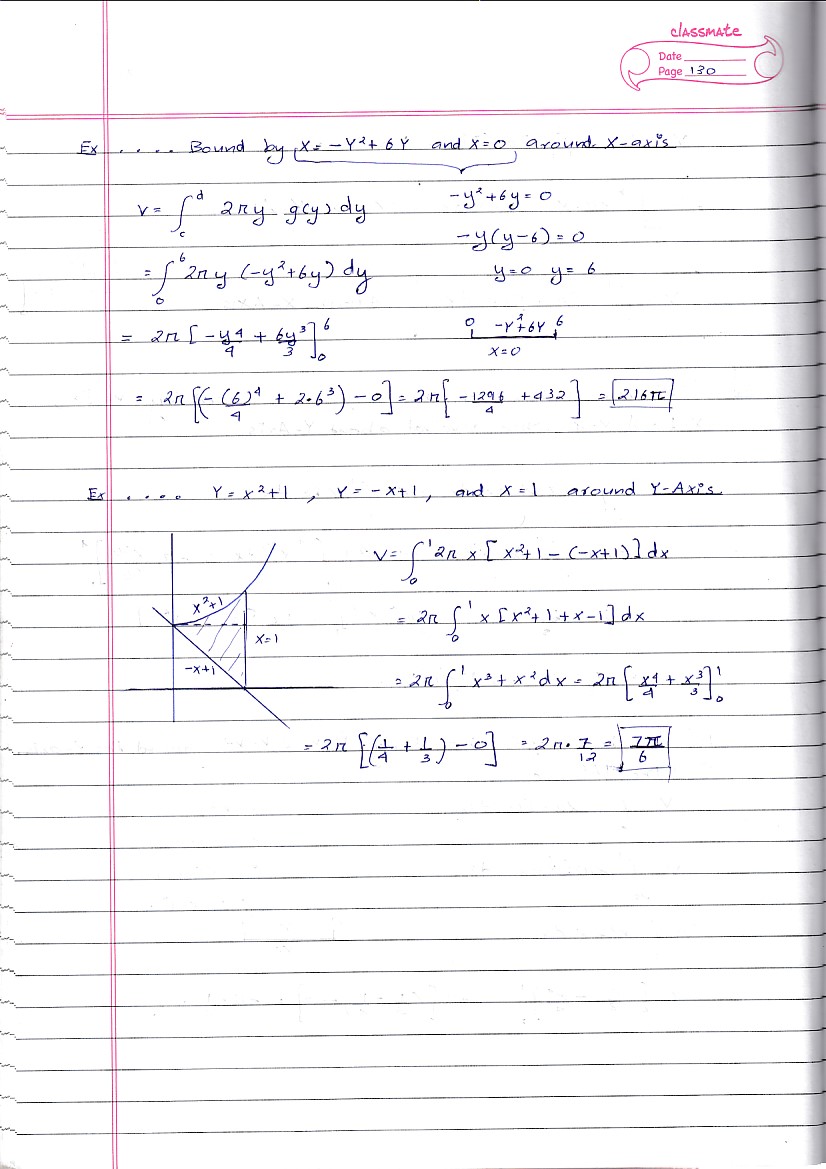 classmate
Date
Page 130
Ex .... Bound by x = -Y² + 6Y and x=0 around X-axis
V = ∫_c^d 2πy g(y) dy
-y² + 6y = 0
-y(y-6) = 0
= ∫_0^6 2πy (-y²+6y) dy
y=0 y=6
= 2π [-y4/4 + 6y³/3]_0^6
0 -Y²+6Y 6
x=0
= 2π [(-(6)4/4 + 2•6³) - 0] = 2π [-1296/4 + 432] = 216π
Ex .... Y = x²+1, Y = -x+1, and X=1 around Y-Axis.
V = ∫_0^1 2π x [x²+1 - (-x+1)] dx
x²+1
= 2π ∫_0^1 x [x²+1+x-1] dx
x=1
-x+1
= 2π ∫_0^1 x³ + x² dx = 2π [x4/4 + x³/3]_0^1
= 2π [(1/4 + 1/3) - 0] = 2π • 7/12 = 7π/6